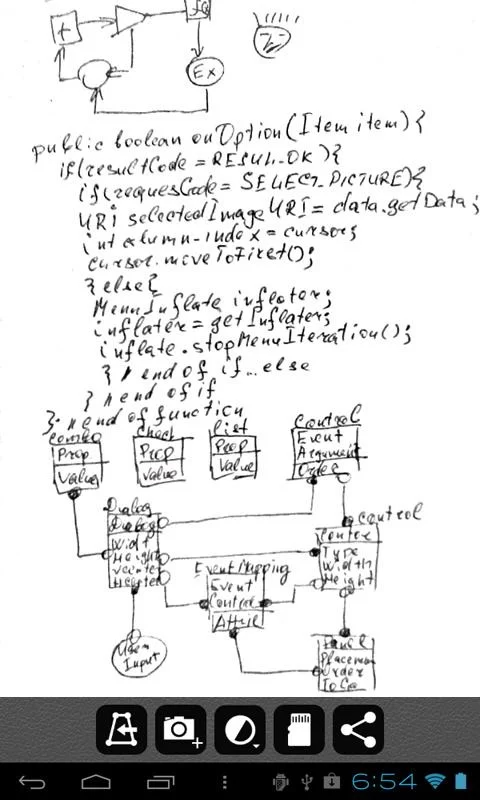 +
Ex
public boolean onOption(Item item){
if(resultCode = RESUL_OK){
if(requesCode = SELECT_PICTURE){
URi selectedImageURI = data.getData;
int column-index = cursor;
cursor.moveToFirst();
} else{
MenuInflate inflater;
inflater = getInflater;
inflate.stopMenuIteration();
} // end of if...else
} // end of if
}. // end of function
Combo
Prop
Value
Check
Prop
Value
List
Prop
Value
Control
Event
Argument
Order
Dialog
Dialog
Width
Height
Vcenter
Hcenter
Control
Contex
Type
Width
Height
EventMapping
Event
Control
Attrie
User
Input
Panel
Placemen
Order
6:54